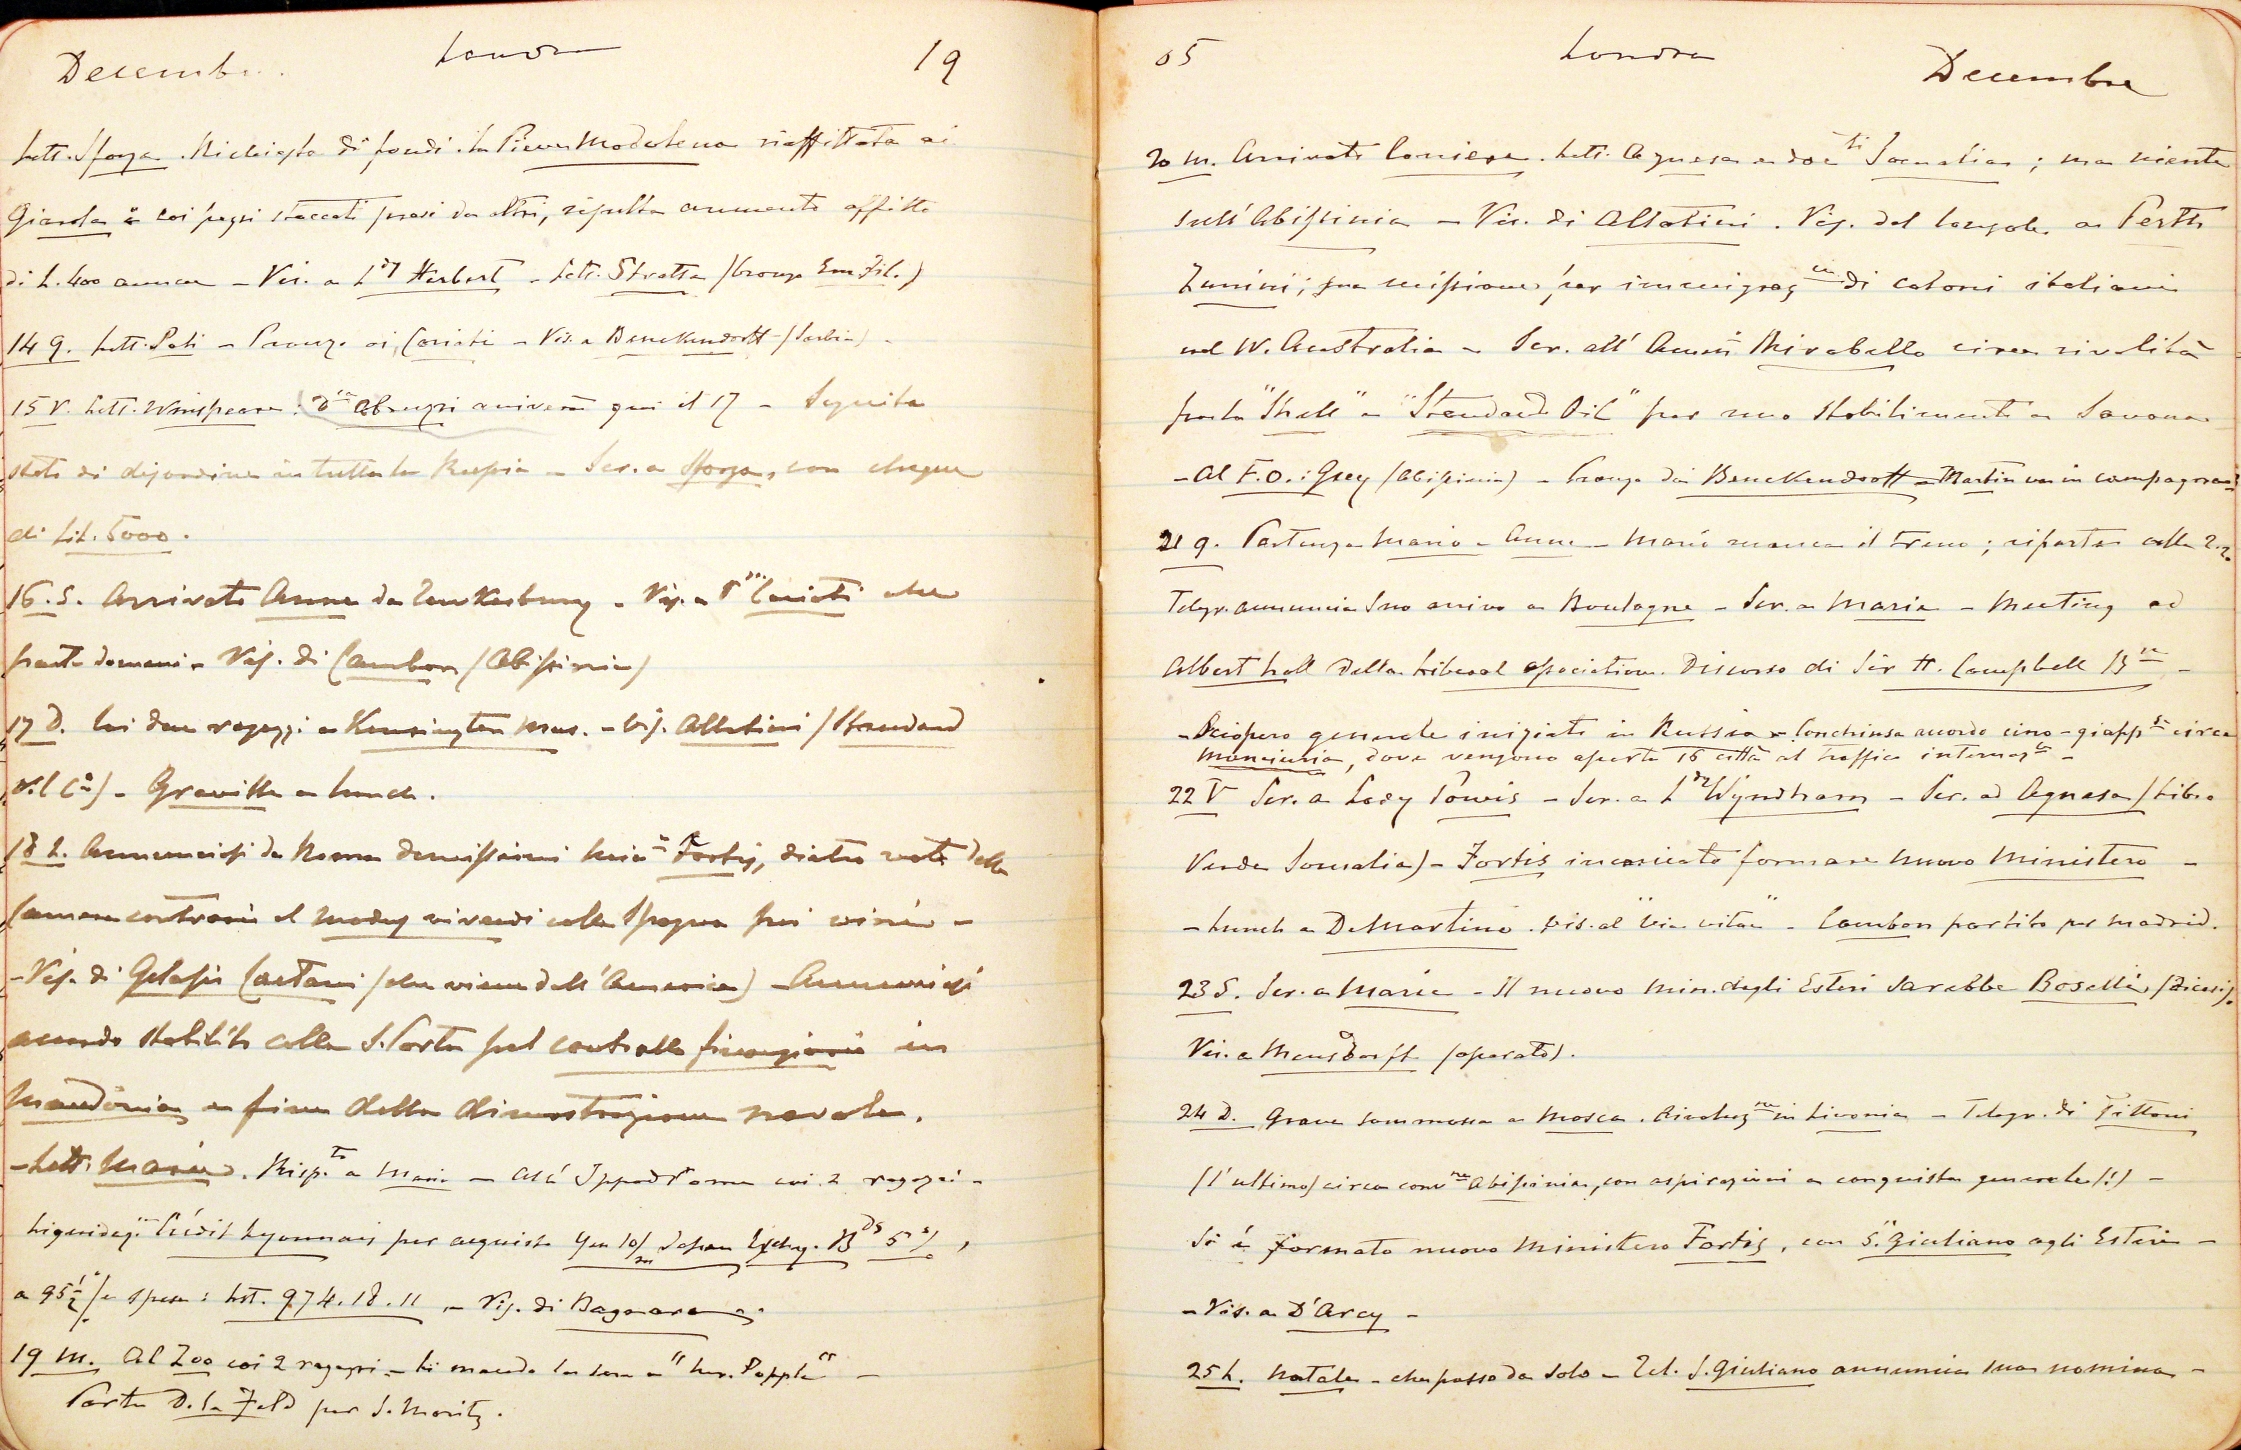 Decembre Londra 19
Lett. Sforza. Richiesta di fondi. La Pieve Modolena riaffittata ai
Giarola e coi pezzi staccati presi da altri, risulta aumento affitto
di L. 400 annue - Vis. a Ly Herbert - Lett. Stretta (Cronza Em. Fil.)
14 G. Lett. Pati - Pranzo ai Cariati - Vis. a Benckendorff (Serbia) -
15 V. Lett. Winspeare: D. Abruzzi arriverà qui il 17 - Seguita
stato di disordine in tutta la Russia - Scr. a Sforza, con cheque
di Lit. 5000.
16. S. Arrivata Anna da Tewkesbury - Vis. a Cariati che
parte domani - Vis. di Cambon (Abissinia)
17 D. Coi due ragazzi a Kensington Mus. - Vis. Allatini (Standard
Oil Co) - Graville a lunch.
18 L. Annunciasi da Roma dimissioni Fortis, dietro voto della
Camera contrario al modus vivendi colla Spagna pei vini -
- Vis. di Gelasio Caetani (che viene dall'America) - Annunciasi
accordo stabilito colla S. Porta pel controllo finanziario in
Macedonia e fine della dimostrazione navale.
- Lett. Maria. Risp.ta a Maria - All'Ippodromo coi 2 ragazzi -
Liquidaz. Crédit Lyonnais per acquisto Yen 10/m Japan Exchq. Bds 5%,
a 95 1/2 /e spese: Lst. 974.18.11 - Vis. di Bagnara -
19 M. Al Zoo coi 2 ragazzi - Li mando la sera a "Mr. Popple" -
Parte D. La Feld per S. Moritz.
05 Londra Decembre
20 M. Arrivato Corriere. Lett. Agnesa e doc.ti Somalia; ma niente
sull'Abissinia - Vis. di Allatini. Vis. del Console a Perth
Zunini; sua missione per immigraz.ne di coloni italiani
nel W. Australia - Scr. all'Amm. Mirabello circa rivalità
fra la "Shell" e "Standard Oil" per uno stabilimento a Savona
- Al F.O.: Grey (Abissinia) - Pranzo da Benckendorff - Martin va in campagna
21 G. Partenza Mario - Anna - Mario manca il treno; riparte alle 2.20
Telegr. annuncia suo arrivo a Boulogne - Scr. a Maria - Meeting ad
Albert Hall della Liberal Association. Discorso di Sir H. Campbell Bn -
- Sciopero generale iniziato in Russia - Conchiuso accordo cino-giapp.se circa
Manciuria, dove vengono aperte 16 città al traffico internaz.le -
22 V Scr. a Lady Powis - Scr. a Ly Wyndham - Scr. ad Agnesa (Libro
Verde Somalia) - Fortis incaricato formare nuovo Ministero -
- Lunch a De Martino. Vis. al "Via vitae" - Cambon partito per Madrid.
23 S. Scr. a Maria - Il nuovo Min. degli Esteri sarebbe Boselli (dicesi).
Vis. a Mensdorff (operato).
24 D. Grave sommossa a Mosca. Rivoluz.ne in Livonia - Telegr. di Tittoni
(l'ultimo) circa conv.ne Abissinia, con aspirazioni a conquista generale (!) -
Si è formato nuovo Ministero Fortis, con S. Giuliano agli Esteri -
- Vis. a D'Arcy -
25 L. Natale - che passo da solo - Tel. S. Giuliano annuncia sua nomina -